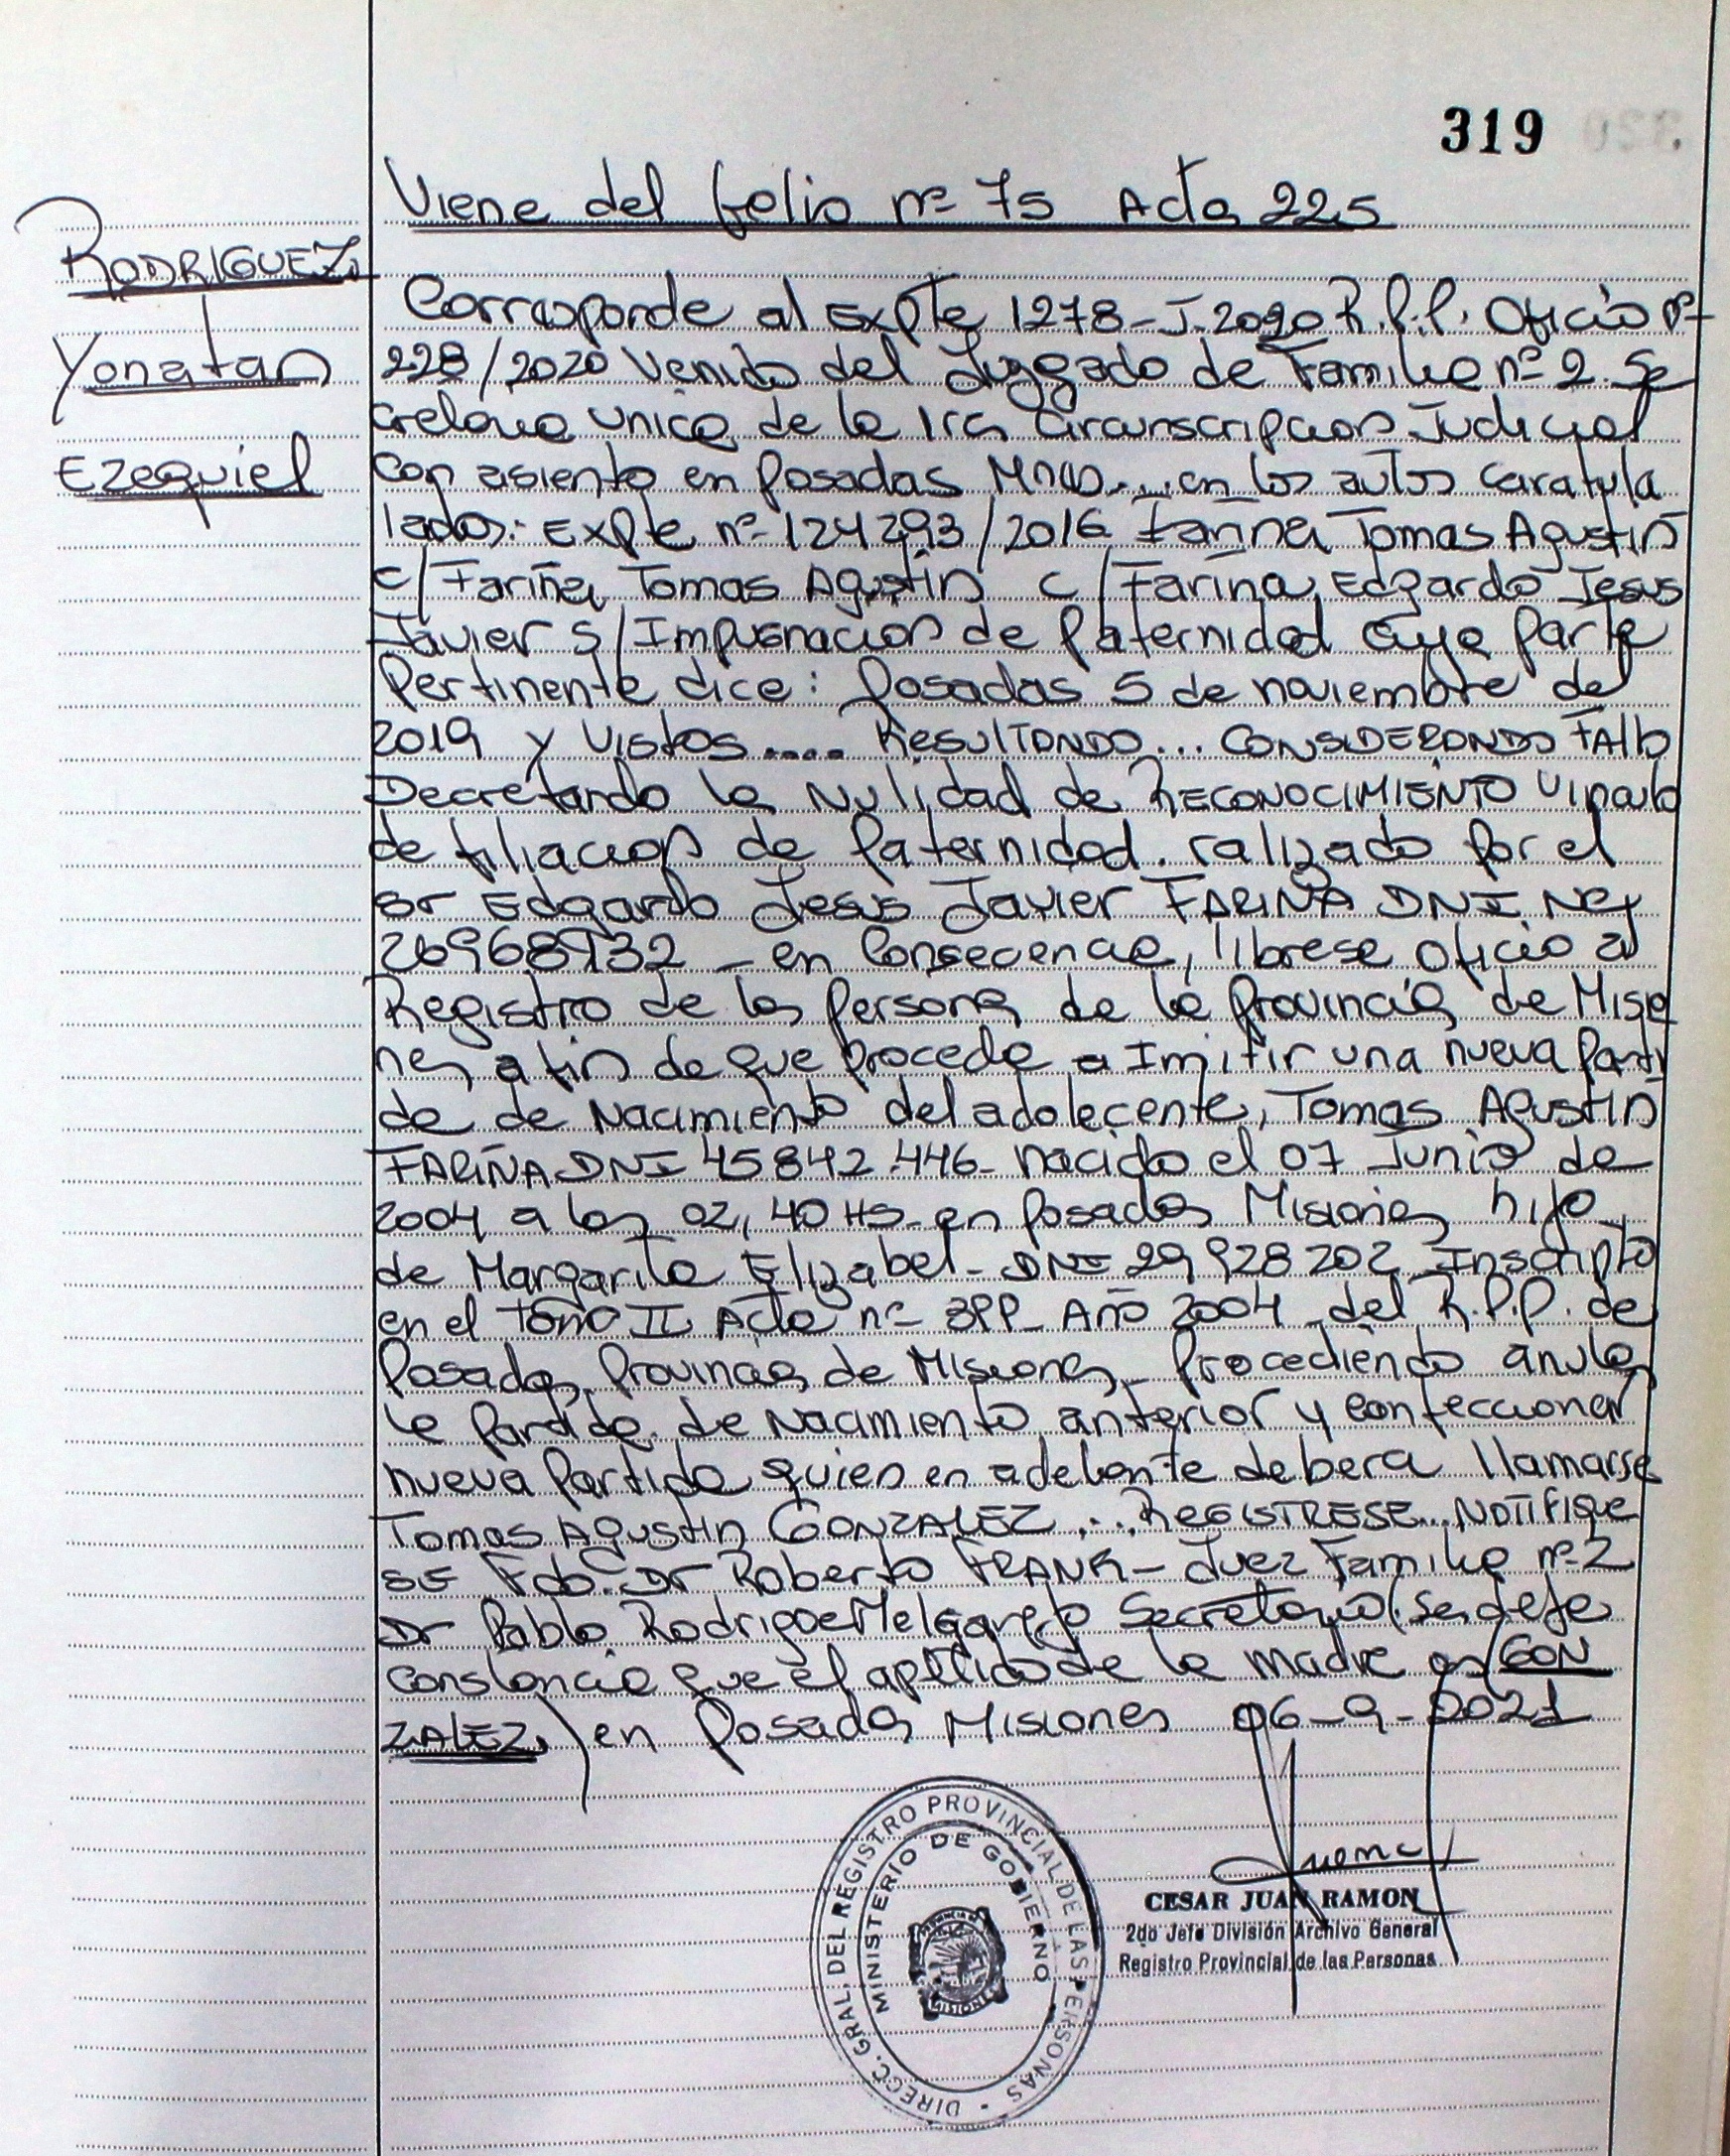 319
Viene del folio nº 75 Acta 225
RODRIGUEZ
Yonatan
Ezequiel
Corresponde al Expte 1278-J-2020 R.P.P. Oficio nº
228/2020 Venido del Juzgado de Familia nº 2. Se
cretaria Unica de la 1ra Circunscripcion Judicial
con asiento en Posadas Mnes... en los autos caratula
lados: Expte nº 124293/2016 Fariña Tomas Agustin
c/Fariña Tomas Agustin c/Fariña Edgardo Jesus
Javier S/Impugnacion de Paternidad cuya parte
Pertinente dice: Posadas 5 de noviembre del
2019 y Vistos.... RESULTANDO... CONSIDERANDO FAllo
Decretando la Nulidad de RECONOCIMIENTO Vinculo
de filiacion de Paternidad. ralizado por el
sr Edgardo Jesus Javier FARIÑA DNI Nº
26968932 - en Consecuencia, librese oficio al
Registro de las Persona de la Provincia de Misio
nes a fin de que proceda a Imitir una nueva Parti
da de Nacimiento del adolecente, Tomas Agustin
FARIÑA DNI 45842.446- nacido el 07 Junio de
2004 a las 02,40 HS- en Posadas Misiones hijo
de Margarita Elizabel- DNI 29 928 202 Inscripto
en el Tomo II Acta nº Año 2004 del R.P.P. de
Posadas, Provincia de Misiones- Procediendo anula
la Partida de Nacimiento anterior y confeccionar
nueva Partida quien en adelante debera llamarse
Tomas Agustin GONZALEZ... REGISTRESE... NOTIFIQUE
SE Fdo. Dr Roberto FRANK- Juez Familia nº 2
Dr Pablo Rodrigoe Melgarejo Secretario (se deja
constancia que el apellido de la madre es GON
ZALEZ) en Posadas Misiones 06-9-2021
DIRECC. GRAL. DEL REGISTRO PROVINCIAL DE LAS PERSONAS
MINISTERIO DE GOBIERNO
PROVINCIA DE
MISIONES
CESAR JUAN RAMON
2do Jefe División Archivo General
Registro Provincial de las Personas